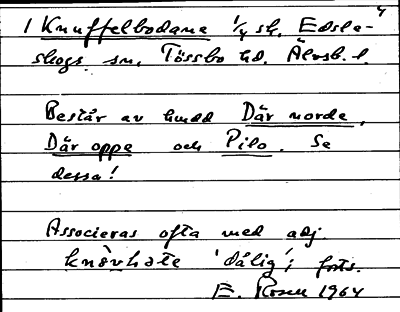 1 Knuffelbodane 1/4 sk. Edsle- 4
skogs sn. Tössbo hd. Älvsb. l.
Består av hmdd Där norde,
Där oppe och Pilo. Se
dessa!
Associeras ofta med adj.
knòvhate 'dålig'; forts.
E. Rosen 1964